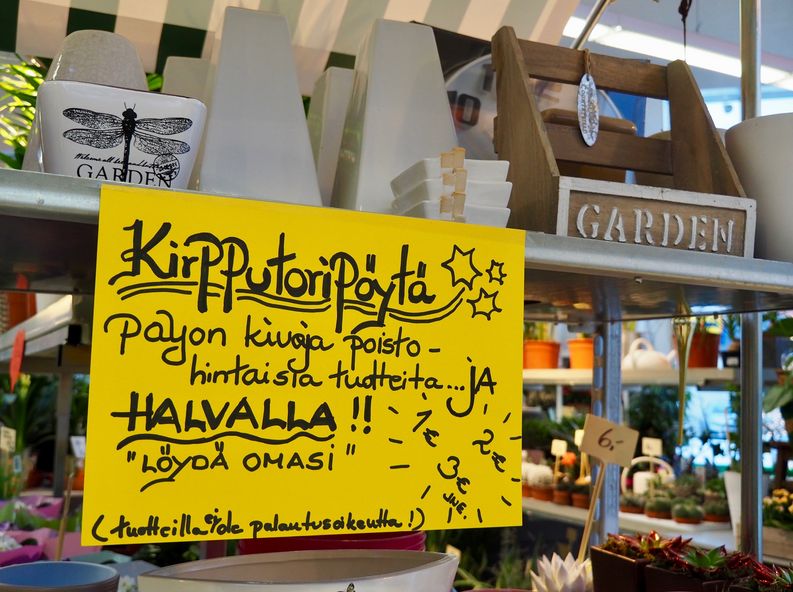 GARDEN
10
GARDEN
Kirpputoripöytä
payon kivoja poisto-
hintaista tuotteita...jA
HALVALLA!!
"LÖYDÄ OMASi"
1€ 2€
3€
JNE.
(tuotteilla ei ole palautusoikeutta!)
6,-